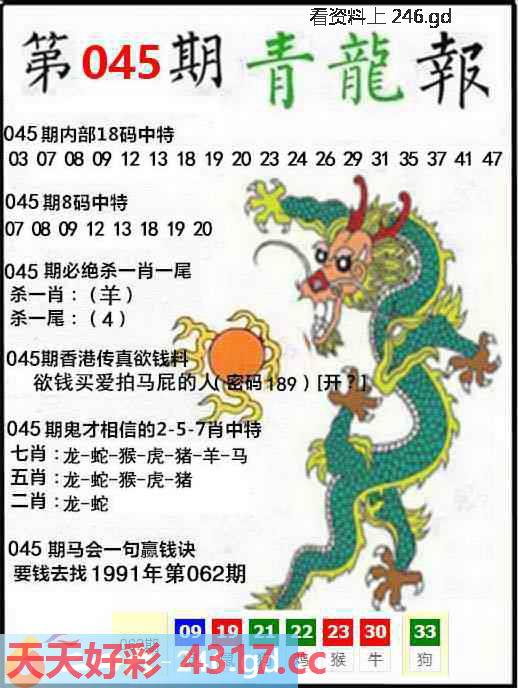 看资料上 246.gd
第045期青龍報
045期内部18码中特
03 07 08 09 12 13 18 19 20 23 24 26 29 31 35 37 41 47
045期8码中特
07 08 09 12 13 18 19 20
045 期必绝杀一肖一尾
杀一肖：（羊）
杀一尾：（4）
045期香港传真欲钱料
欲钱买爱拍马屁的人(密码189）[开？]
045期鬼才相信的2-5-7肖中特
七肖：龙-蛇-猴-虎-猪-羊-马
五肖：龙-蛇-猴-虎-猪
二肖：龙-蛇
045 期马会一句赢钱诀
要钱去找1991年第062期
09 19 21 22 23 30 33
猴 牛 狗
天天好彩 4317.cc